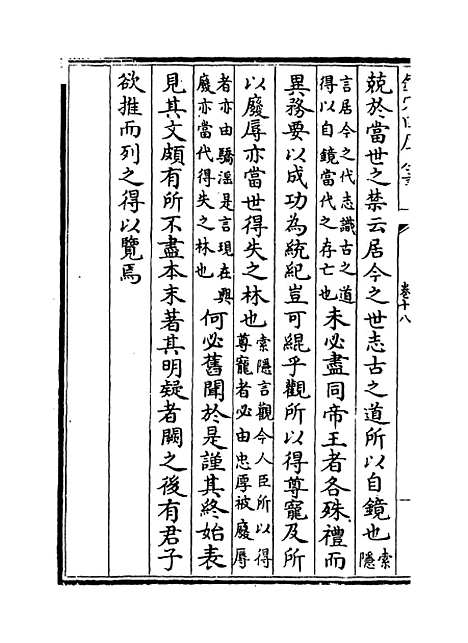 卷十八
兢於當世之禁云居今之世志古之道所以自鏡也索隱
言居今之代志識古之道
得以自鏡當代之存亡也
未必盡同帝王者各殊禮而
異務要以成功為統紀豈可緄乎觀所以得尊寵及所
以廢辱亦當世得失之林也
索隱言觀今人臣所以得
尊寵者必由忠厚被廢辱
者亦由驕淫是言現在興
廢亦當代得失之林也
何必舊聞於是謹其終始表
見其文頗有所不盡本末著其明疑者闕之後有君子
欲推而列之得以覽焉